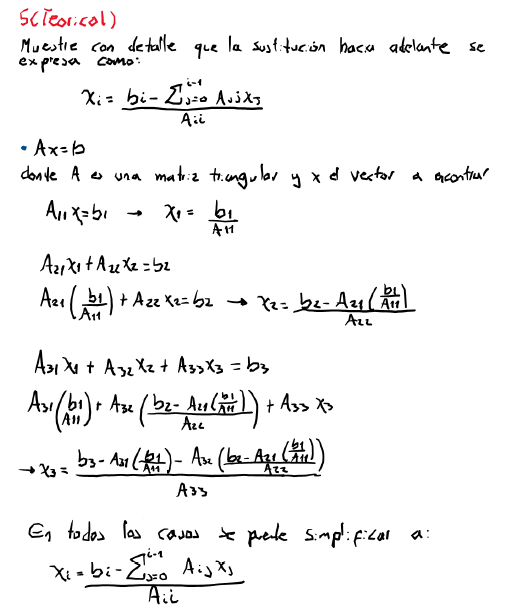 5(Teorical)
Muestre con detalle que la sustitución hacia adelante se
expresa como:
xi = bi - Σ_{j=0}^{i-1} Aij xj / Aii
• Ax=b
donde A es una matriz triangular y x el vector a encontrar
A11 x1 = b1 → x1 = b1/A11
A21x1 + A22x2 = b2
A21(b1/A11) + A22 x2 = b2 → x2 = b2 - A21(b1/A11) / A22
A31 x1 + A32 x2 + A33 x3 = b3
A31(b1/A11) + A32(b2 - A21(b1/A11) / A22) + A33 x3
→ x3 = b3 - A31(b1/A11) - A32(b2 - A21(b1/A11) / A22) / A33
En todos los casos se puede simplificar a:
xi = bi - Σ_{j=0}^{i-1} Aij xj / Aii